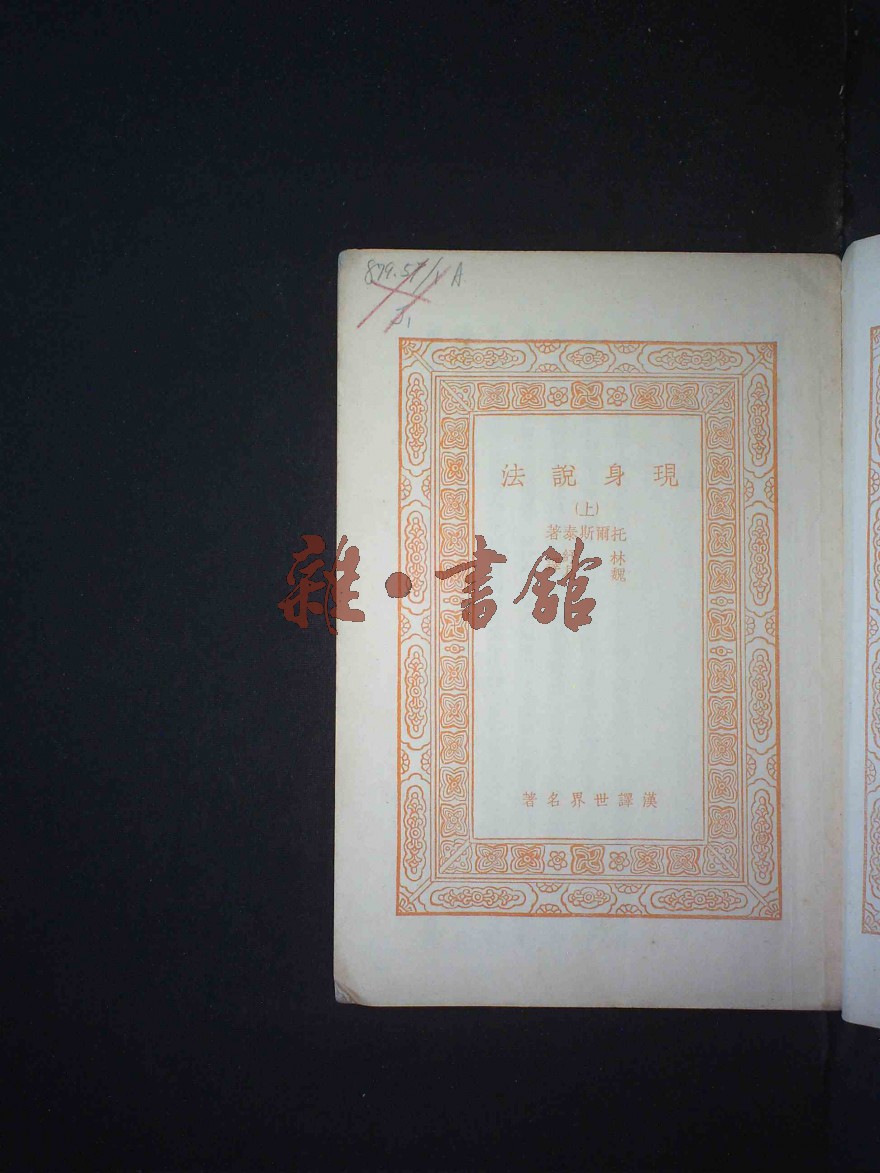 879.57/1 A
現身說法
(上)
托爾斯泰著
林
魏
雜·書館
漢譯世界名著